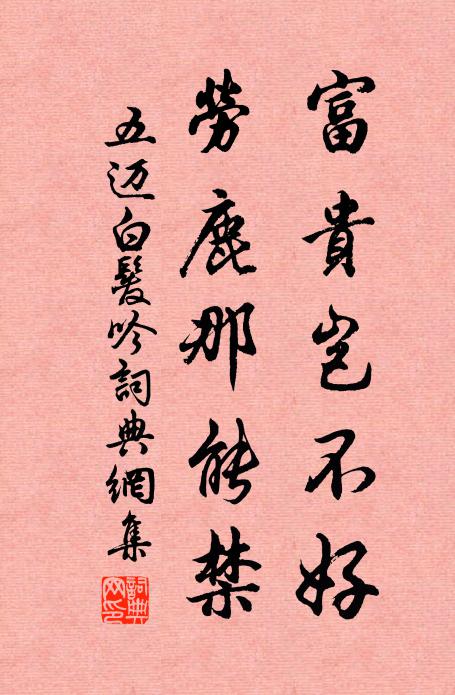 富貴豈不好
勞鹿那能禁
五迈白髮吟詞典網集
詞典网印